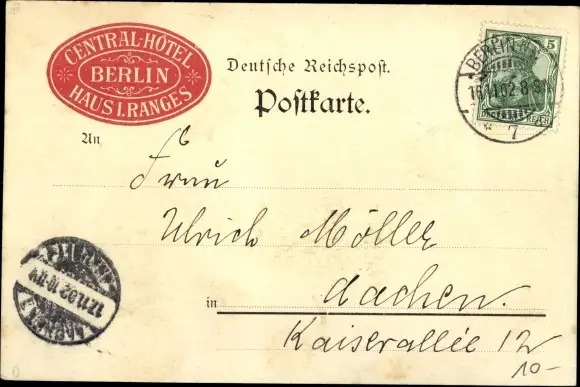 CENTRAL-HÔTEL
BERLIN
HAUS I. RANGES
Deutsche Reichspost.
Postkarte.
5
BERLIN
16.11.02. 8-9N
7
DEUTSCHES REICH
An
Frau
Ulrich Möller
in Aachen.
Kaiserallée 12
AACHEN
17.11.02. 10-11V
10-